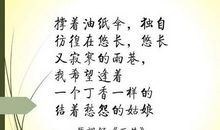 撑着油纸伞，独自
彷徨在悠长，悠长
又寂寥的雨巷，
我希望逢着
一个丁香一样的
结着愁怨的姑娘